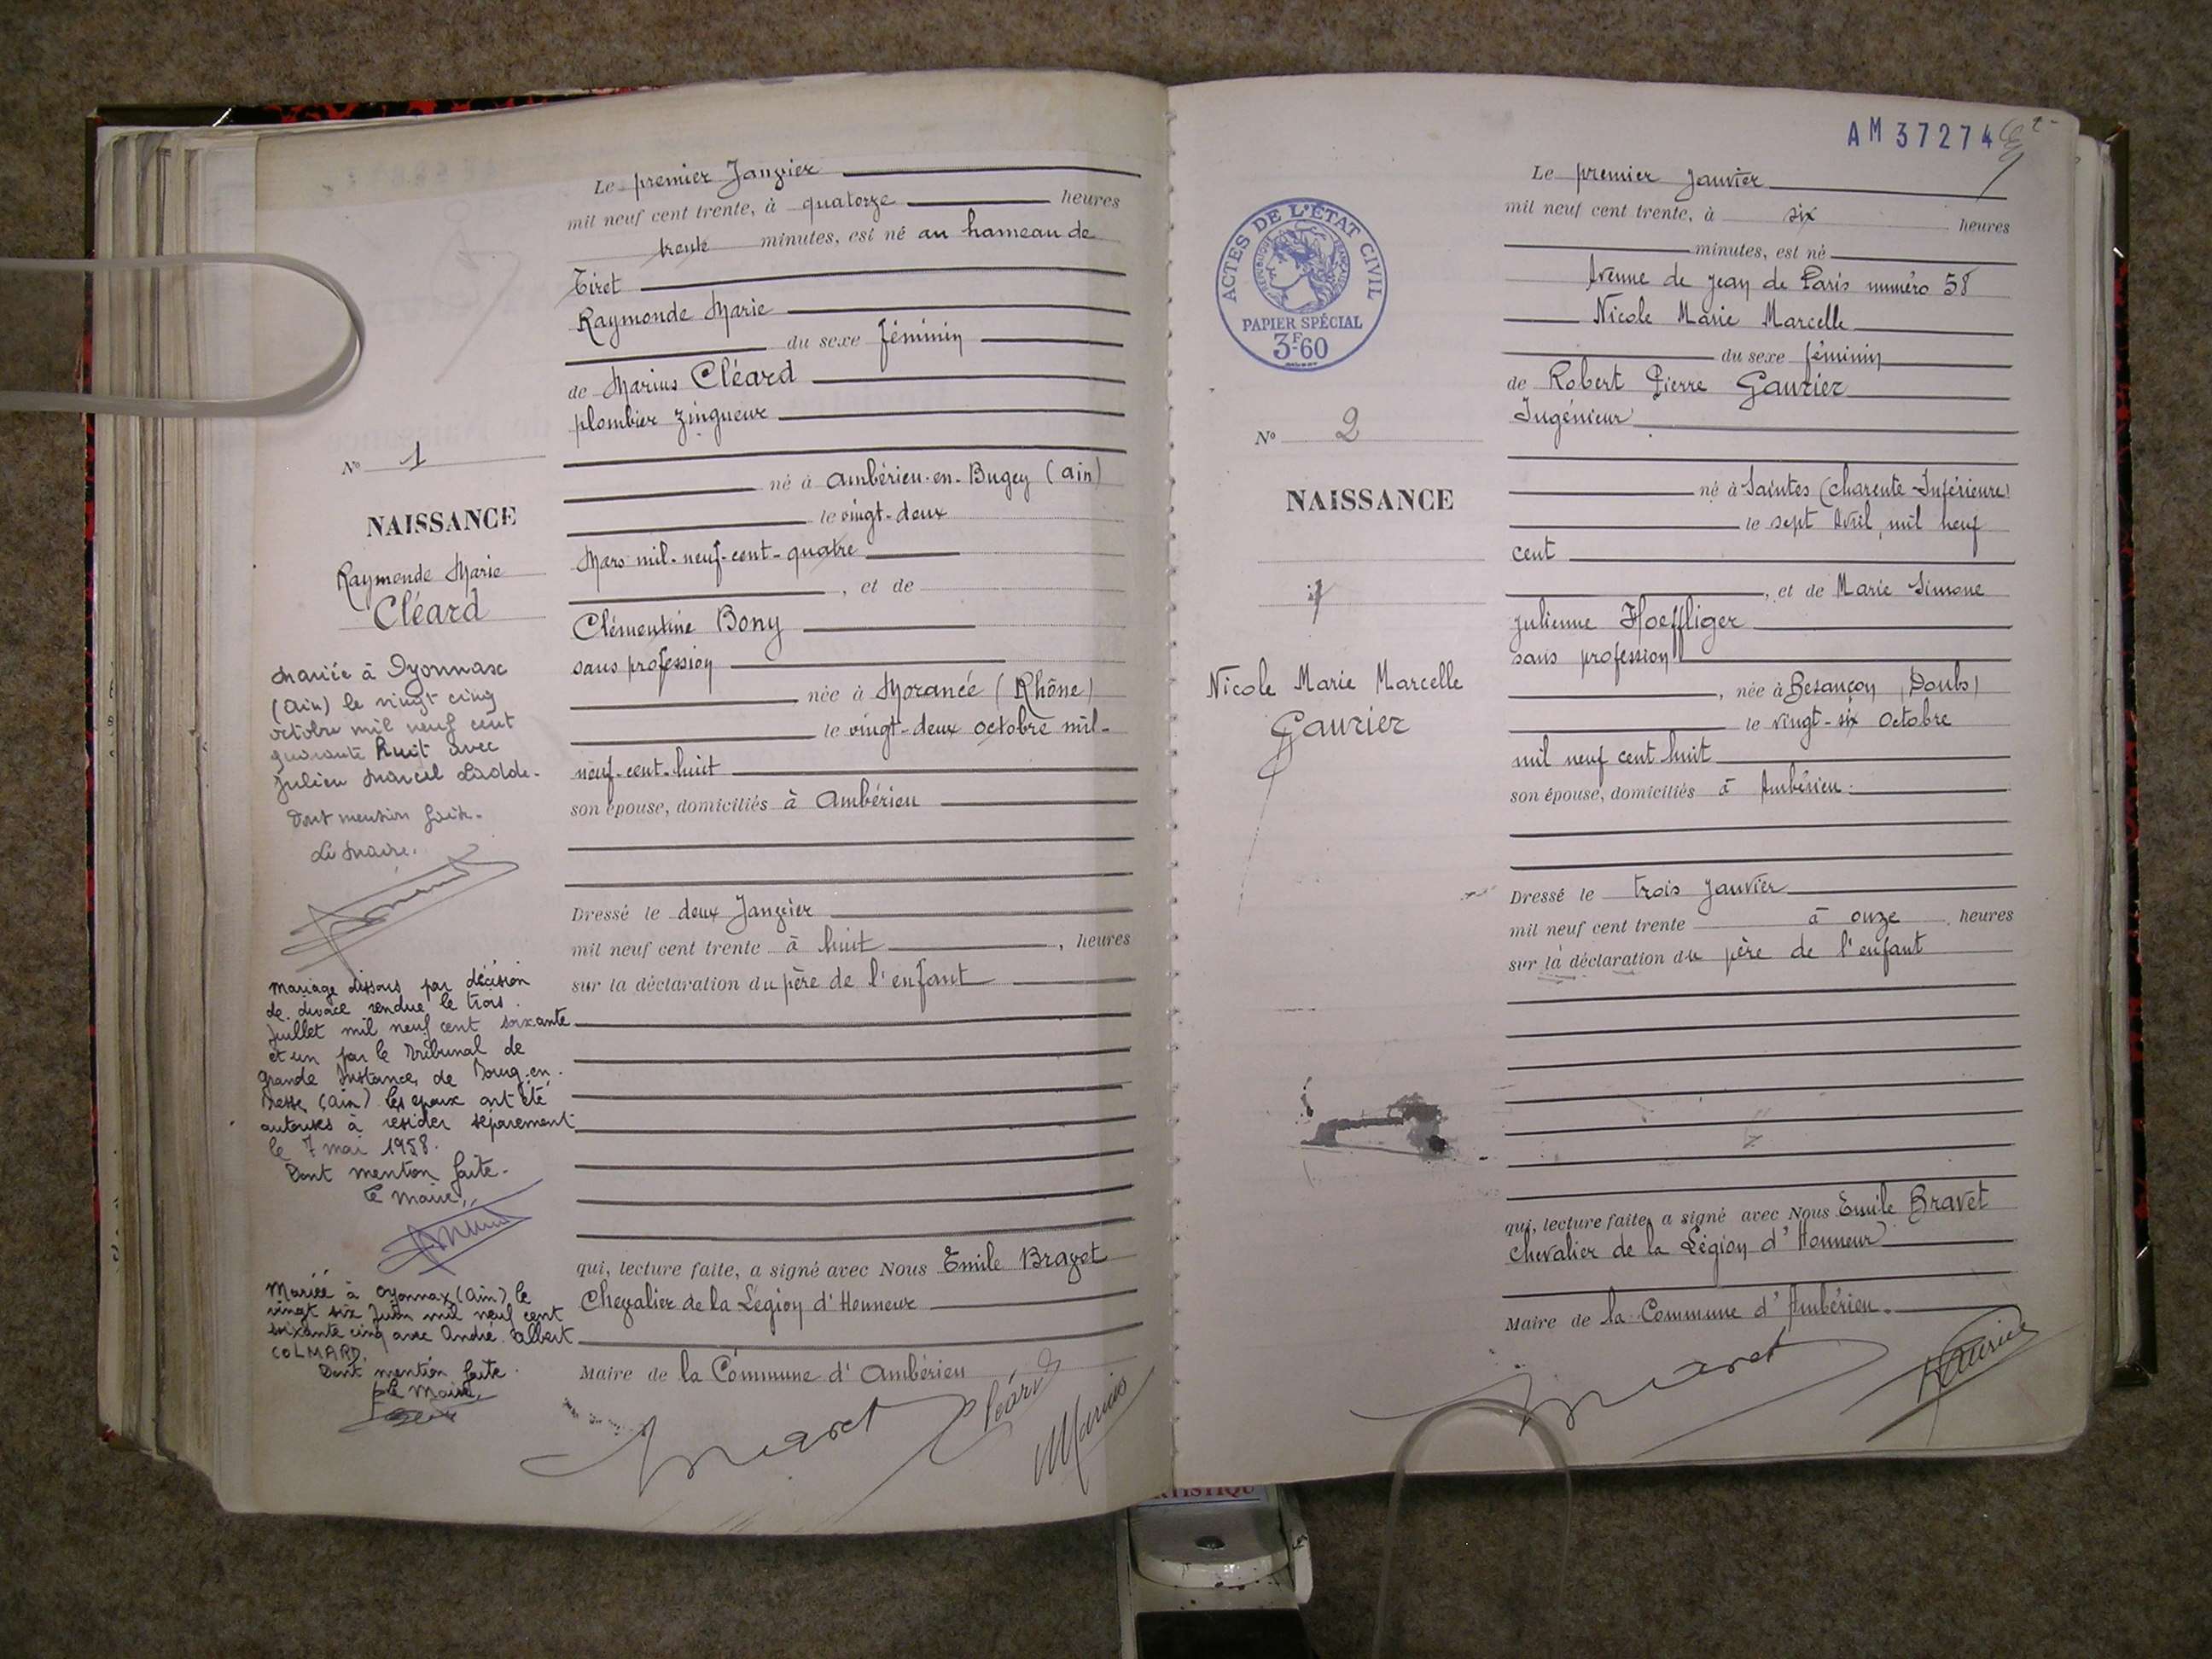 Le premier Janvier
mil neuf cent trente, à quatorze heures
trente minutes, est né au hameau de
Tiret
Raymonde Marie
du sexe féminin
de Marius Cléard
plombier zingueur
né à Ambérieu-en-Bugey (Ain)
le vingt-deux
Mars mil-neuf-cent-quatre
, et de
Clémentine Bony
sans profession
née à Morancé (Rhône)
le vingt-deux octobre mil-
neuf-cent-huit
son épouse, domiciliés à Ambérieu
Dressé le deux Janvier
mil neuf cent trente à huit , heures
sur la déclaration du père de l'enfant
qui, lecture faite, a signé avec Nous Emile Bravet
Chevalier de la Légion d'Honneur
Maire de la Commune d'Ambérieu
Cléard
Marius
No 1
NAISSANCE
Raymonde Marie
Cléard
Mariée à Oyonnax
(Ain) le vingt cinq
octobre mil neuf cent
quarante huit avec
Julien Marcel
Dont mention faite.
Le Maire.
Mariage dissous par décision
de divorce rendue le trois
Juillet mil neuf cent soixante
et un par le Tribunal de
Grande Instance de Bourg-en-
Bresse (Ain) les époux ont été
autorisés à resider séparement
le 7 mai 1958.
Dont mention faite.
Le Maire,
Mariée à Oyonnax (Ain) le
vingt six Juin mil neuf cent
soixante cinq avec André Albert
COLMARD.
Dont mention faite.
p le Maire,
AM 37274
ACTES DE L'ÉTAT CIVIL
RÉPUBLIQUE FRANÇAISE
PAPIER SPÉCIAL
3F60
Le premier Janvier
mil neuf cent trente, à six heures
minutes, est né
Avenue de Jean de Paris numéro 58
Nicole Marie Marcelle
du sexe féminin
de Robert Pierre Gaurier
Ingénieur
né à Saintes (Charente Inférieure)
le sept Avril, mil neuf
cent
, et de Marie Simone
Julienne Hoeffliger
sans profession
, née à Besançon (Doubs)
le vingt-six Octobre
mil neuf cent huit
son épouse, domiciliés à Ambérieu.
Dressé le trois Janvier
mil neuf cent trente à onze heures
sur la déclaration du père de l'enfant
qui, lecture faite, a signé avec Nous Emile Bravet
Chevalier de la Légion d'Honneur
Maire de la Commune d'Ambérieu.
No 2
NAISSANCE
Nicole Marie Marcelle
Gaurier